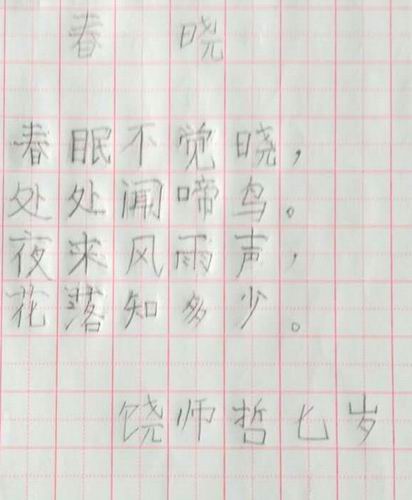 春晓
春眠不觉晓，
处处闻啼鸟。
夜来风雨声，
花落知多少。
饶师哲七岁